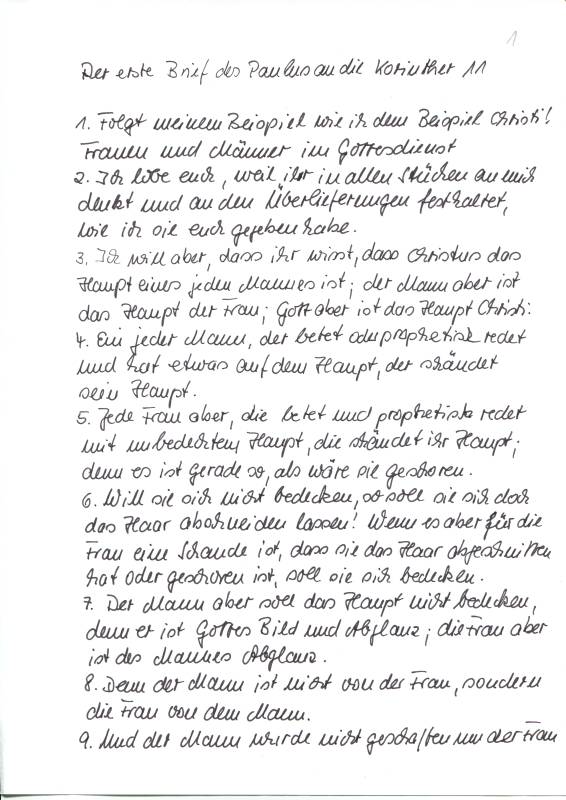 1
Der erste Brief des Paulus an die Korinther 11
1. Folgt meinem Beispiel wie ich dem Beispiel Christi!
Frauen und Männer im Gottesdienst
2. Ich lobe euch, weil ihr in allen Stücken an mich
denkt und an den Überlieferungen festhaltet,
wie ich sie euch gegeben habe.
3. Ich will aber, dass ihr wisst, dass Christus das
Haupt eines jeden Mannes ist; der Mann aber ist
das Haupt der Frau; Gott aber ist das Haupt Christi.
4. Ein jeder Mann, der betet oder prophetisch redet
und hat etwas auf dem Haupt, der schändet
sein Haupt.
5. Jede Frau aber, die betet und prophetisch redet
mit unbedecktem Haupt, die schändet ihr Haupt;
denn es ist gerade so, als wäre sie geschoren.
6. Will sie sich nicht bedecken, so soll sie sich doch
das Haar abschneiden lassen! Wenn es aber für die
Frau eine Schande ist, dass sie das Haar abgeschnitten
hat oder geschoren ist, soll sie sich bedecken.
7. Der Mann aber soll das Haupt nicht bedecken,
denn er ist Gottes Bild und Abglanz; die Frau aber
ist des Mannes Abglanz.
8. Denn der Mann ist nicht von der Frau, sondern
die Frau von dem Mann.
9. Und der Mann wurde nicht geschaffen um der Frau